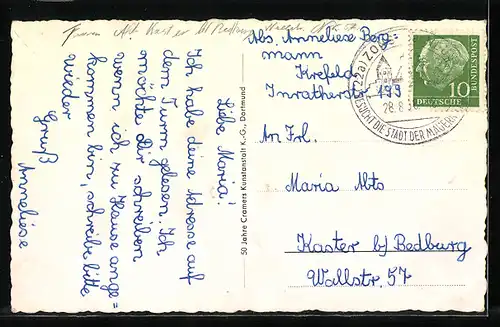 Liebe Maria!
Ich habe deine Adresse auf
dem Turm gelesen. Ich
möchte dir schreiben
wenn ich zu Hause ange=
kommen bin, schreibe bitte
wieder
Gruß
Anneliese
50 Jahre Cramers Kunstanstalt K.-G., Dortmund
Abs. Anneliese Berg-
mann
Krefeld
Inratherstr. 199
An Frl.
Maria Abts
Kaster b/ Bedburg
Wallstr. 57
(22a) ZO
28.8.
BESUCHT DIE STADT DER MAUERN
DEUTSCHE
BUNDESPOST
10